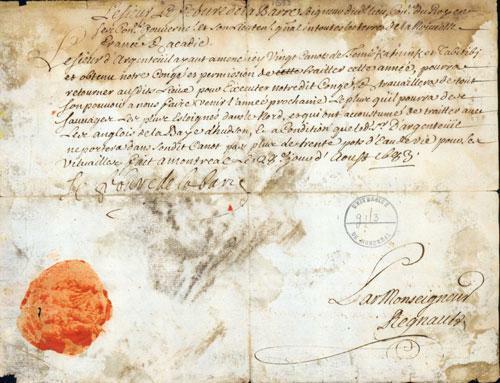 Le sieur Le febure de la Barre Seigneur dudit lieu, Con.er du Roy en
Ses Con.ls Gouverneur et son Lieuten.t gñal en toutes les terres de la Nouvelle
france & Acadie
Le sieur d'Argenteuil ayant amené icy Vingt Canots de
et obtenu notre Congé et permission de traitter cette année, pourra
retourner ausdits Lieux pour Executer notredit Congé & travaillera de tout
son pouvoir a nous faire venir l'année prochaine Le plus qu'il pourra de
Sauvages Les plus Esloignés dans le Nord, et qui ont acoustumé de traitter avec
Les anglois de la Baye d'hudson, et a Condition que led.t s.r d'argenteüil
ne portera dans sondit Canot pas plus de trente pots d'Eau de Vie pour les
Vituailles fait a Montreal Le Jour d'Aoust 1683
Le febvre de la barre
UNIVERSITÉ
DE MONTRÉAL
Par Monseigneur
Regnault